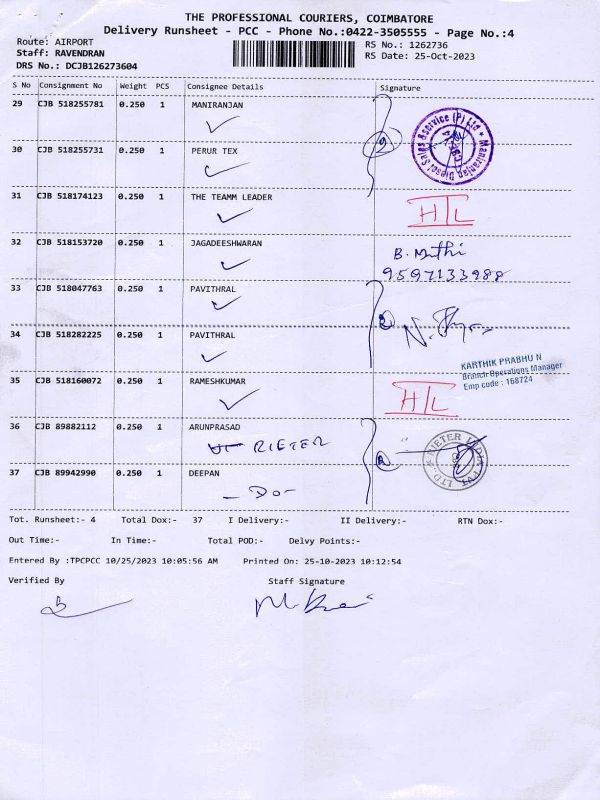 THE PROFESSIONAL COURIERS, COIMBATORE
Delivery Runsheet - PCC - Phone No.:0422-3505555 - Page No.:4
Route: AIRPORT
Staff: RAVENDRAN
DRS No.: DCJB126273604
RS No.: 1262736
RS Date: 25-Oct-2023
S No Consignment No Weight PCS Consignee Details Signature
29 CJB 518255781 0.250 1 MANIRANJAN
Maniranjan Diesel Sales &service (P) Ltd
30 CJB 518255731 0.250 1 PERUR TEX
31 CJB 518174123 0.250 1 THE TEAMM LEADER
HTL
32 CJB 518153720 0.250 1 JAGADEESHWARAN
B. Mathi
9597133988
33 CJB 518047763 0.250 1 PAVITHRAL
34 CJB 518282225 0.250 1 PAVITHRAL
KARTHIK PRABHU N
Branch Operations Manager
Emp code : 168724
35 CJB 518160072 0.250 1 RAMESHKUMAR
HTL
36 CJB 89882112 0.250 1 ARUNPRASAD
RIETER
RIETER INDIA PVT. LTD.
37 CJB 89942990 0.250 1 DEEPAN
- Do -
Tot. Runsheet:- 4 Total Dox:- 37 I Delivery:- II Delivery:- RTN Dox:-
Out Time:- In Time:- Total POD:- Delvy Points:-
Entered By :TPCPCC 10/25/2023 10:05:56 AM Printed On: 25-10-2023 10:12:54
Verified By Staff Signature